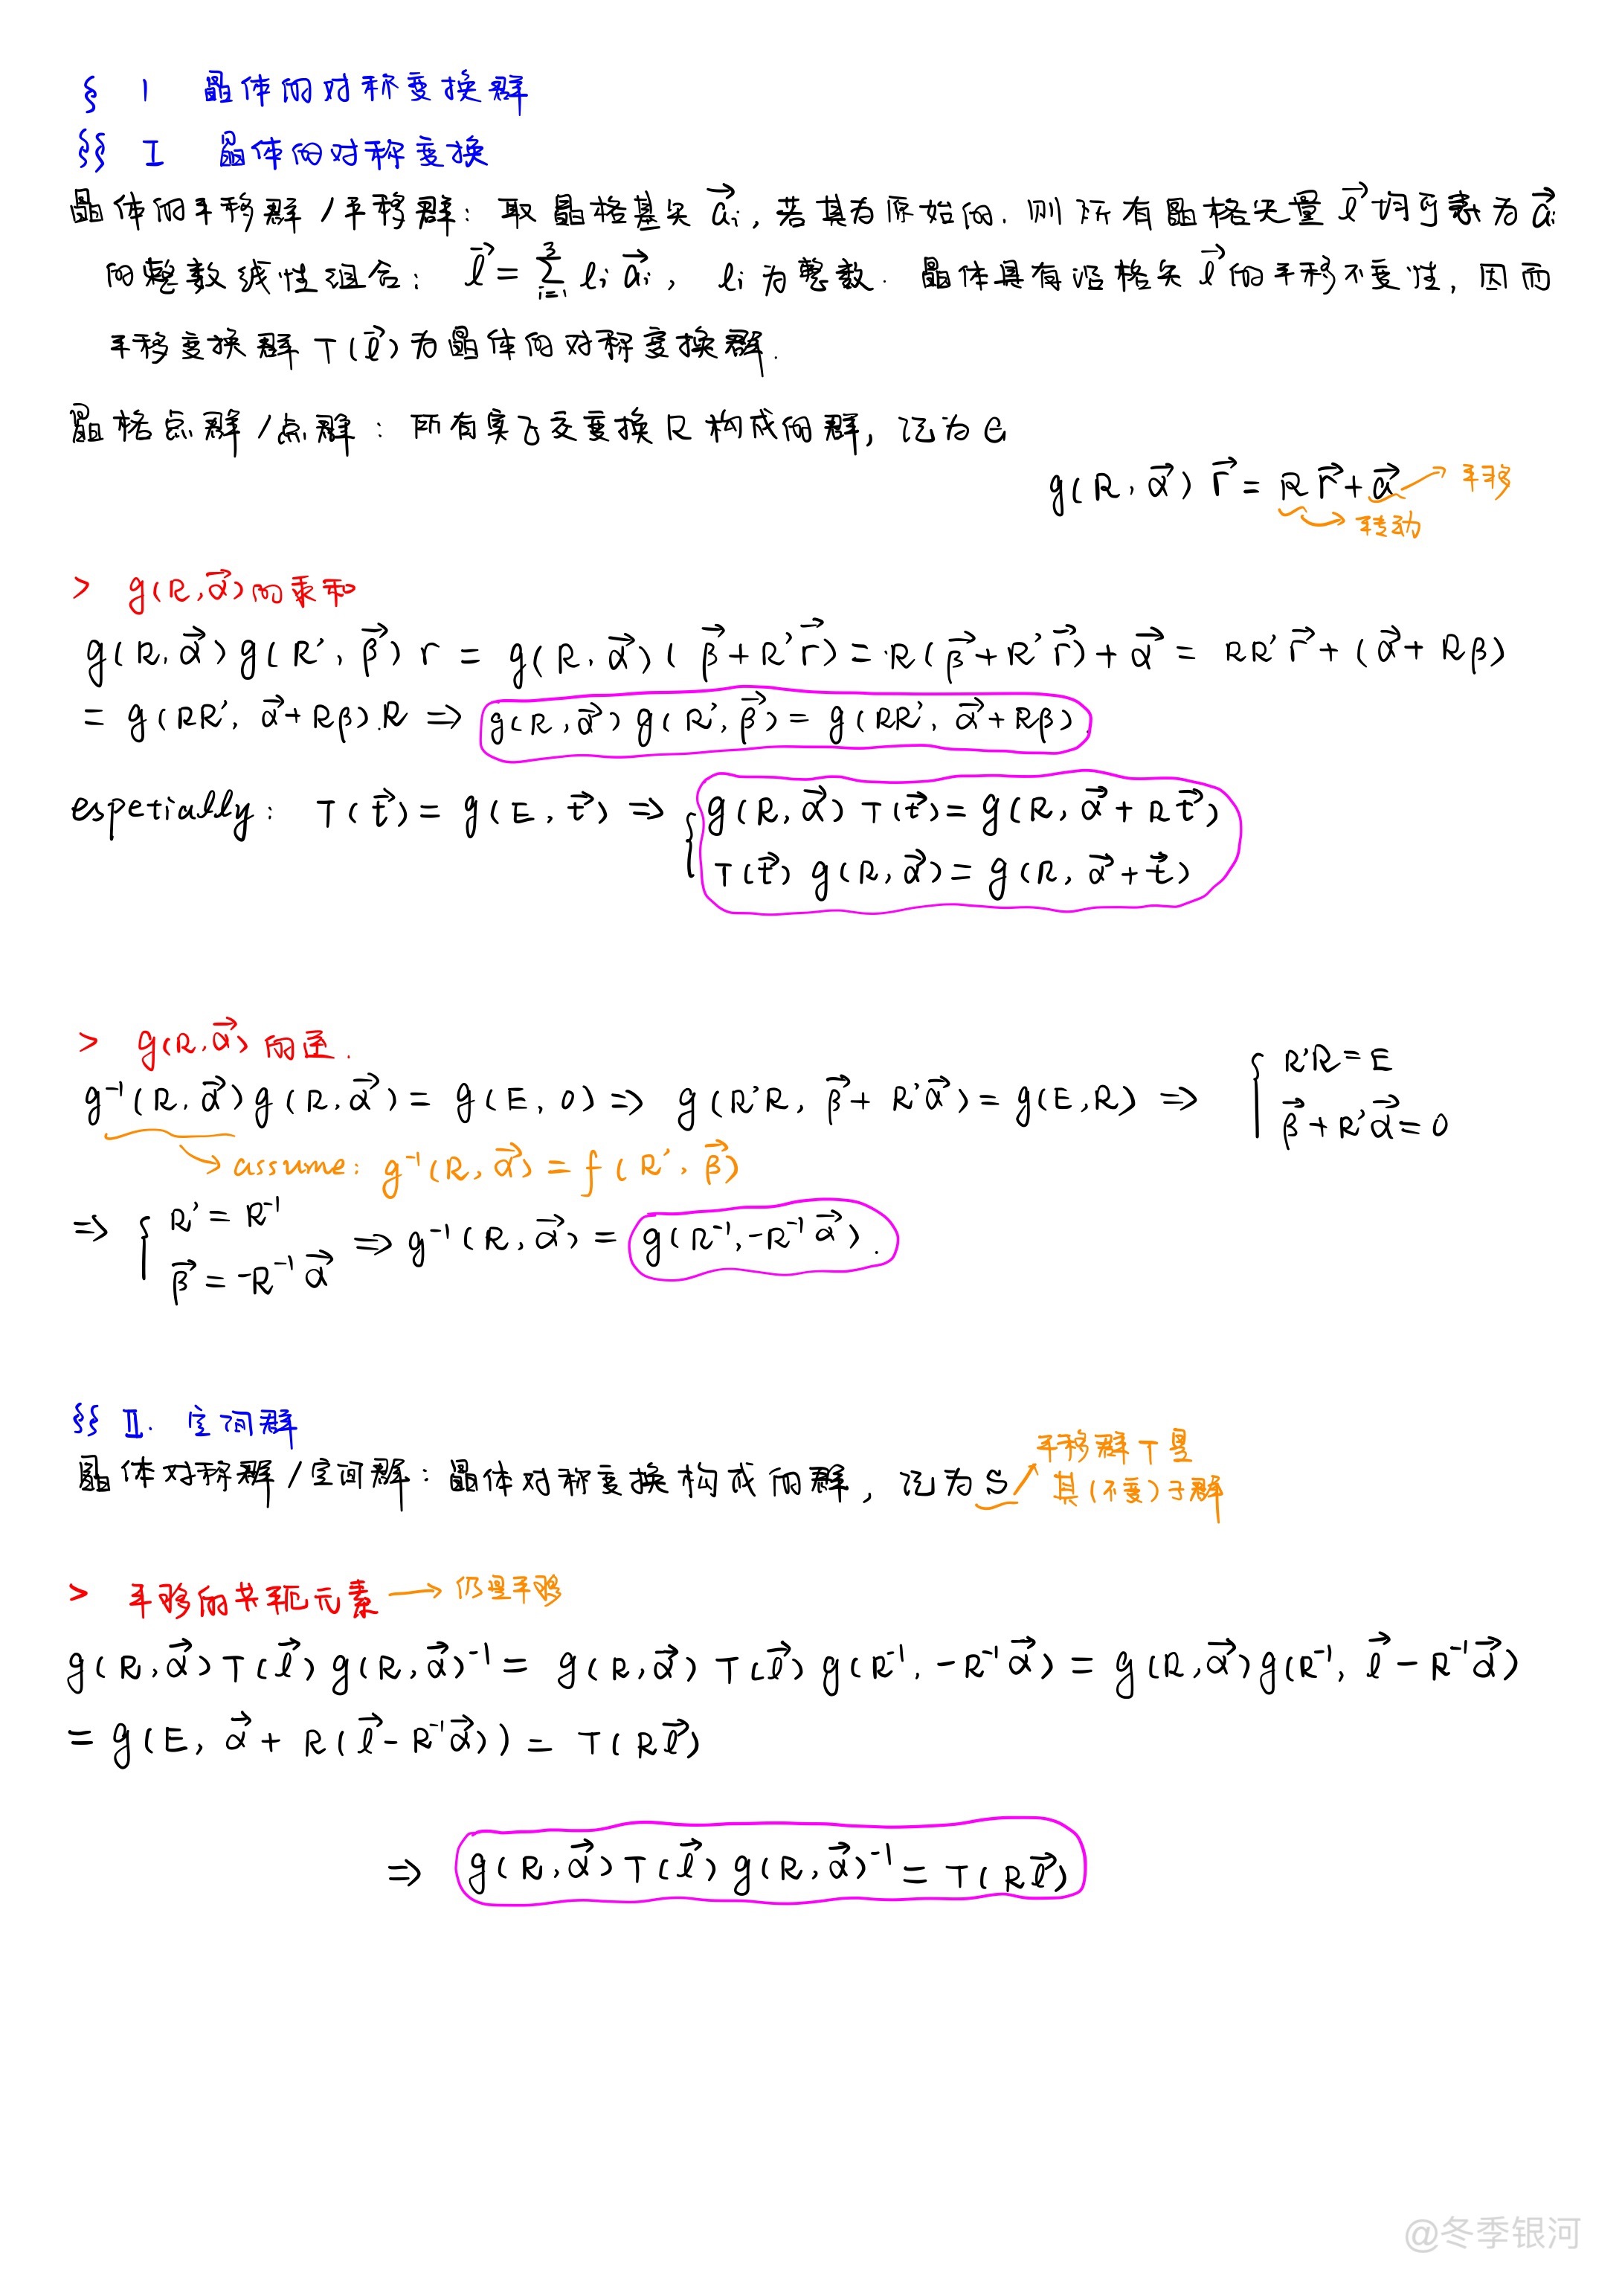 § 1 晶体的对称变换群
§§ I 晶体的对称变换
晶体的平移群/平移群: 取晶格基矢 $\vec{a}_i$, 若其为原始的. 则所有晶格矢量 $\vec{l}$ 均可表为 $\vec{a}_i$
的整数线性组合: $\vec{l} = \sum_{i=1}^{3} l_i \vec{a}_i$, $l_i$ 为整数. 晶体具有沿格矢 $\vec{l}$ 的平移不变性, 因而
平移变换群 $T(\vec{l})$ 为晶体的对称变换群.
晶格点群/点群: 所有实正交变换 R 构成的群, 记为 G
$g(R, \vec{\alpha}) \vec{r} = R\vec{r} + \vec{a}$ → 平移
→ 转动
> $g(R, \vec{\alpha})$ 的乘和
$g(R, \vec{\alpha}) g(R', \vec{\beta}) r = g(R, \vec{\alpha}) (\vec{\beta} + R'\vec{r}) = R(\vec{\beta} + R'\vec{r}) + \vec{\alpha} = RR'\vec{r} + (\vec{\alpha} + R\beta)$
$= g(RR', \vec{\alpha} + R\beta).R \Rightarrow g(R, \vec{\alpha}) g(R', \vec{\beta}) = g(RR', \vec{\alpha} + R\beta)$.
espetially: $T(\vec{t}) = g(E, \vec{t}) \Rightarrow \{ g(R, \vec{\alpha}) T(\vec{t}) = g(R, \vec{\alpha} + R\vec{t})$
$T(\vec{t}) g(R, \vec{\alpha}) = g(R, \vec{\alpha} + \vec{t})$
> $g(R, \vec{\alpha})$ 的逆.
$g^{-1}(R, \vec{\alpha}) g(R, \vec{\alpha}) = g(E, 0) \Rightarrow g(R'R, \vec{\beta} + R'\vec{\alpha}) = g(E, R) \Rightarrow \{ R'R = E$
$\vec{\beta} + R'\vec{\alpha} = 0$
→ assume: $g^{-1}(R, \vec{\alpha}) = f(R', \vec{\beta})$
$\Rightarrow \{ R' = R^{-1}$
$\vec{\beta} = -R^{-1}\vec{\alpha} \Rightarrow g^{-1}(R, \vec{\alpha}) = g(R^{-1}, -R^{-1}\vec{\alpha})$.
§§ II. 空间群
晶体对称群/空间群: 晶体对称变换构成的群, 记为 S
→ 平移群 T 是
其(不变)子群
> 平移的共轭元素 → 仍是平移
$g(R, \vec{\alpha}) T(\vec{l}) g(R, \vec{\alpha})^{-1} = g(R, \vec{\alpha}) T(\vec{l}) g(R^{-1}, -R^{-1}\vec{\alpha}) = g(R, \vec{\alpha}) g(R^{-1}, \vec{l} - R^{-1}\vec{\alpha})$
$= g(E, \vec{\alpha} + R(\vec{l} - R^{-1}\vec{\alpha})) = T(R\vec{l})$
$\Rightarrow g(R, \vec{\alpha}) T(\vec{l}) g(R, \vec{\alpha})^{-1} = T(R\vec{l})$
@冬季银河